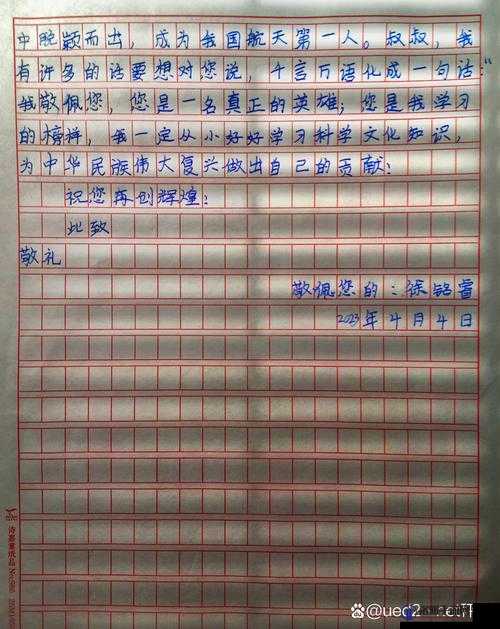 中晚颖而出，成为我国航天第一人。叔叔，我
有许多的话要想对您说，千言万语化成一句话：“
我敬佩您，您是一名真正的英雄；您是我学习
的榜样，我一定从小好好学习科学文化知识，
为中华民族伟大复兴做出自己的贡献！
祝您再创辉煌！
此致
敬礼
敬佩您的：徐铭睿
2023年4月4日